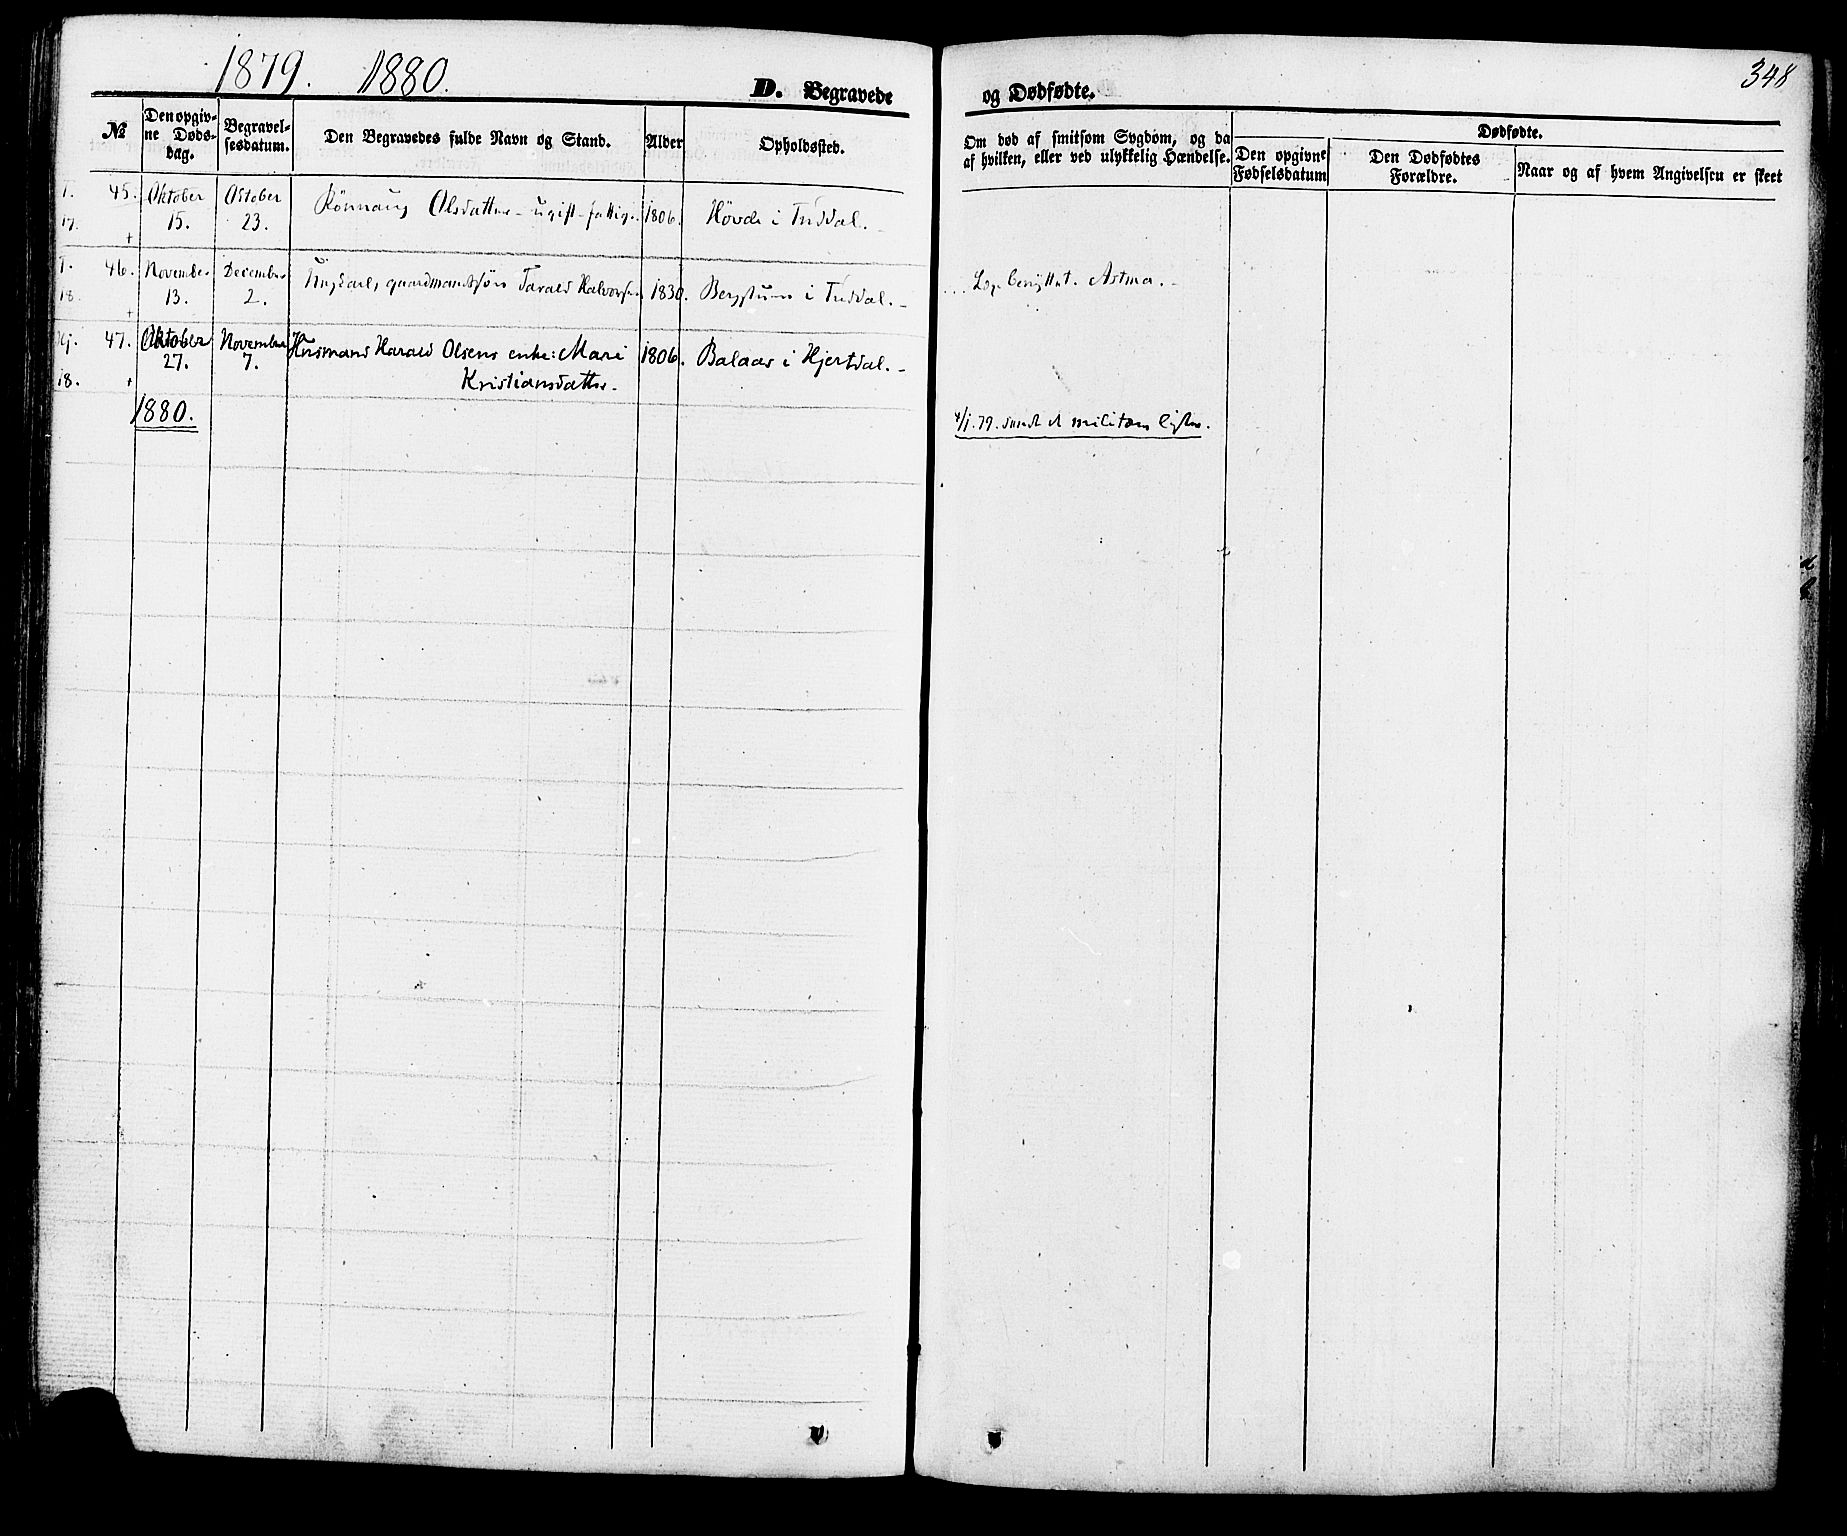 1879. 1880.
D. Begravede og Dødfødte.
348
№
Den opgivne Dødsdag.
Begravelsesdatum.
Den Begravedes fulde Navn og Stand.
Alder
Opholdssted.
Om død af smitsom Sygdom, og da af hvilken, eller ved ulykkelig Hændelse.
Dødfødte.
Den opgivne Fødselsdatum
Den Dødfødtes Forældre.
Naar og af hvem Angivelsen er skeet
T. 45. Oktober Oktober Rönnaug Olsdatter - ugift - fattig. 1806. Hövde i Tuddal. -
17. + 15. 23.
T. 46. November December Ungkarl, gaardmandssön Tarald Halvorsen 1830. Bergstuen i Tuddal. - Læge benyttet. Astma. -
18. + 13. 2.
Hj. 47. Oktober November Husmand Harald Olsens enke: Mari 1806. Balaas i Hjertdal. -
18. + 27. 7. Kristiansdatter. -
1880.
4/1. 79. sendt militær lister.